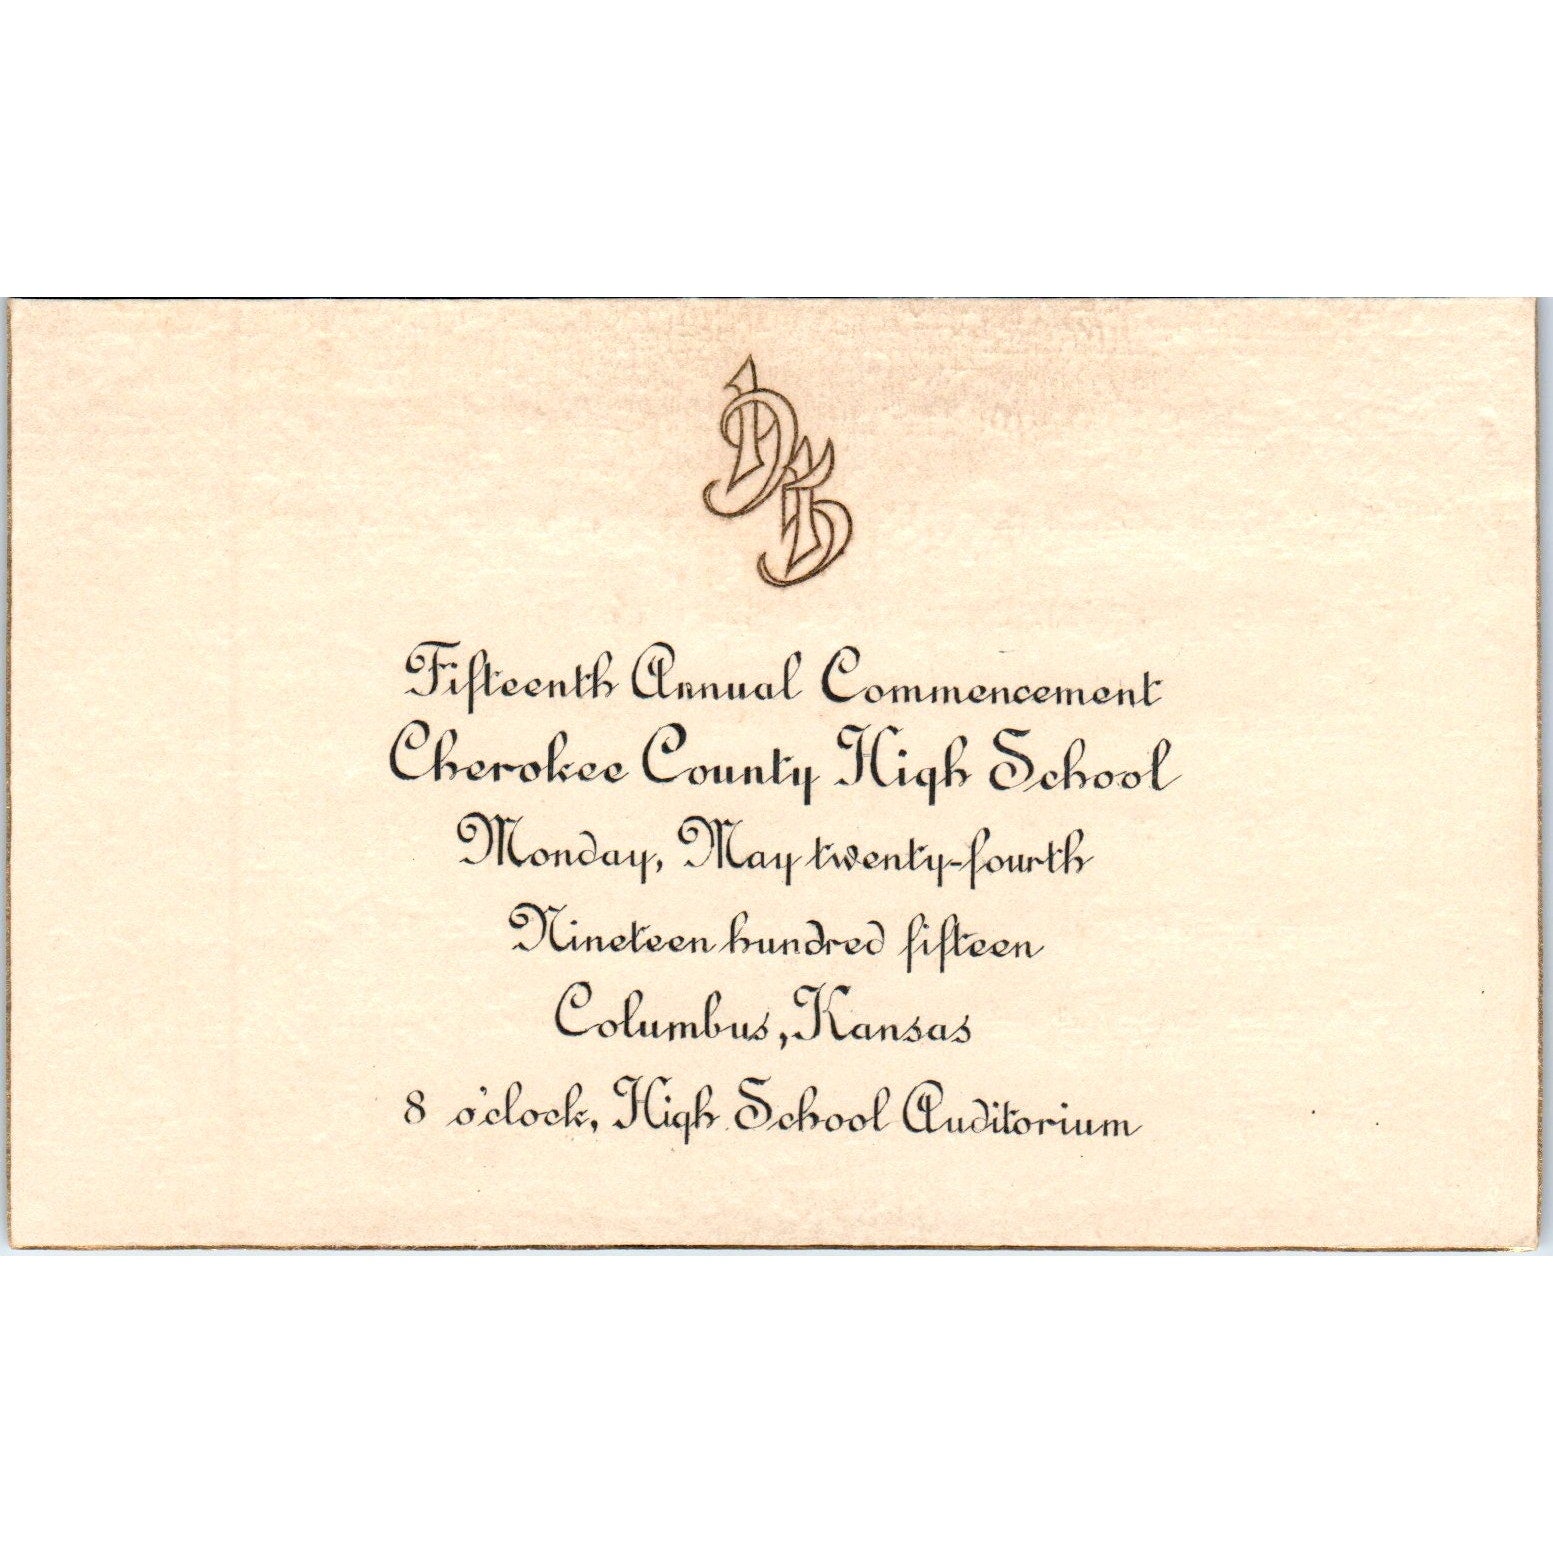 Fifteenth Annual Commencement
Cherokee County High School
Monday, May twenty-fourth
Nineteen hundred fifteen
Columbus, Kansas
8 o'clock, High School Auditorium